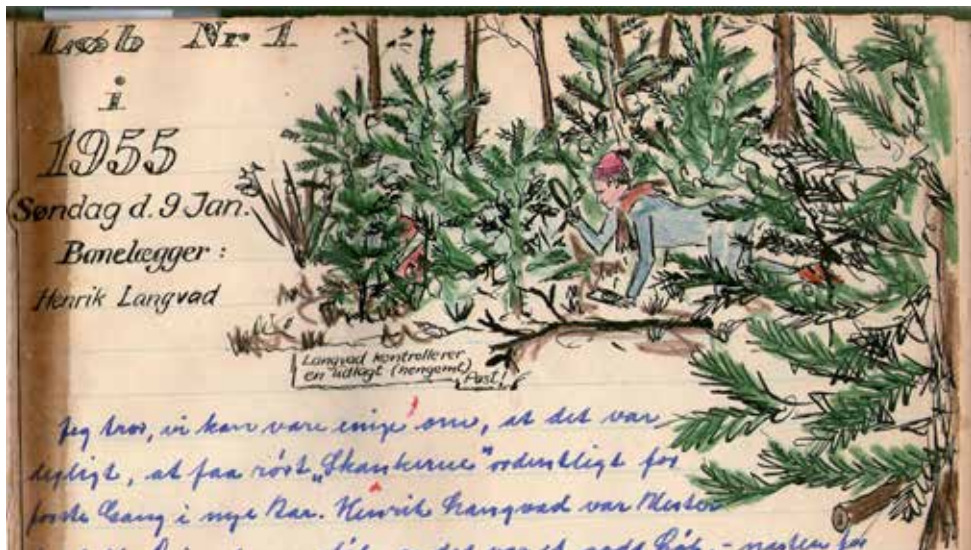 Løb Nr 1
i
1955
(Søndag d. 9 Jan.
Banelægger :
Henrik Langvad
Langvad kontrollerer
en udlagt (hengemt)
Post!
Jeg tror, vi kan være enige om, at det var
dejligt, at faa rørt "Skankerne" ordentligt for
første Gang i nye Aar. Henrik Langvad var Mester
det var et godt Løb, - næsten for